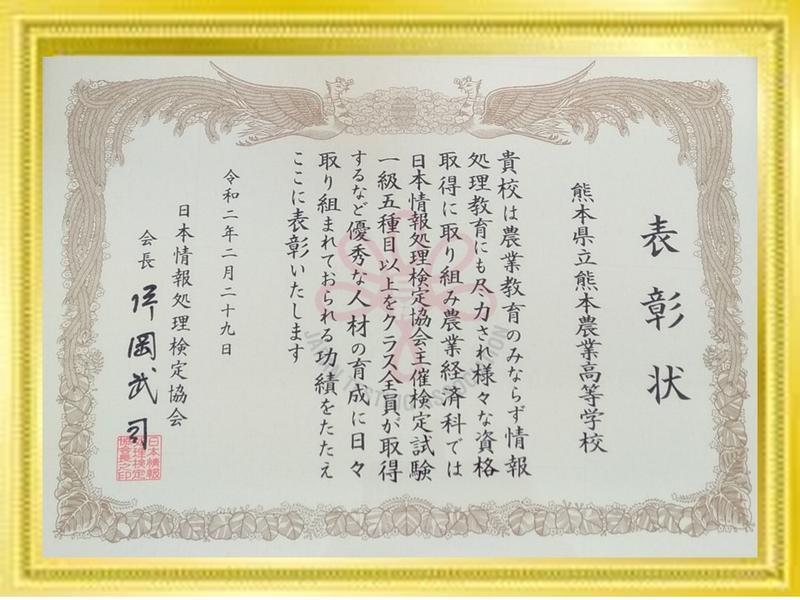 表彰状
熊本県立熊本農業高等学校
貴校は農業教育のみならず情報
処理教育にも尽力され様々な資格
取得に取り組み農業経済科では
日本情報処理検定協会主催検定試験
一級五種目以上をクラス全員が取得
するなど優秀な人材の育成に日々
取り組まれておられる功績をたたえ
ここに表彰いたします
令和二年二月二十九日
日本情報処理検定協会
会長 岡武司
JAPAN TESTING ASSOCIATION
日本情報
処理検定
協会長之印